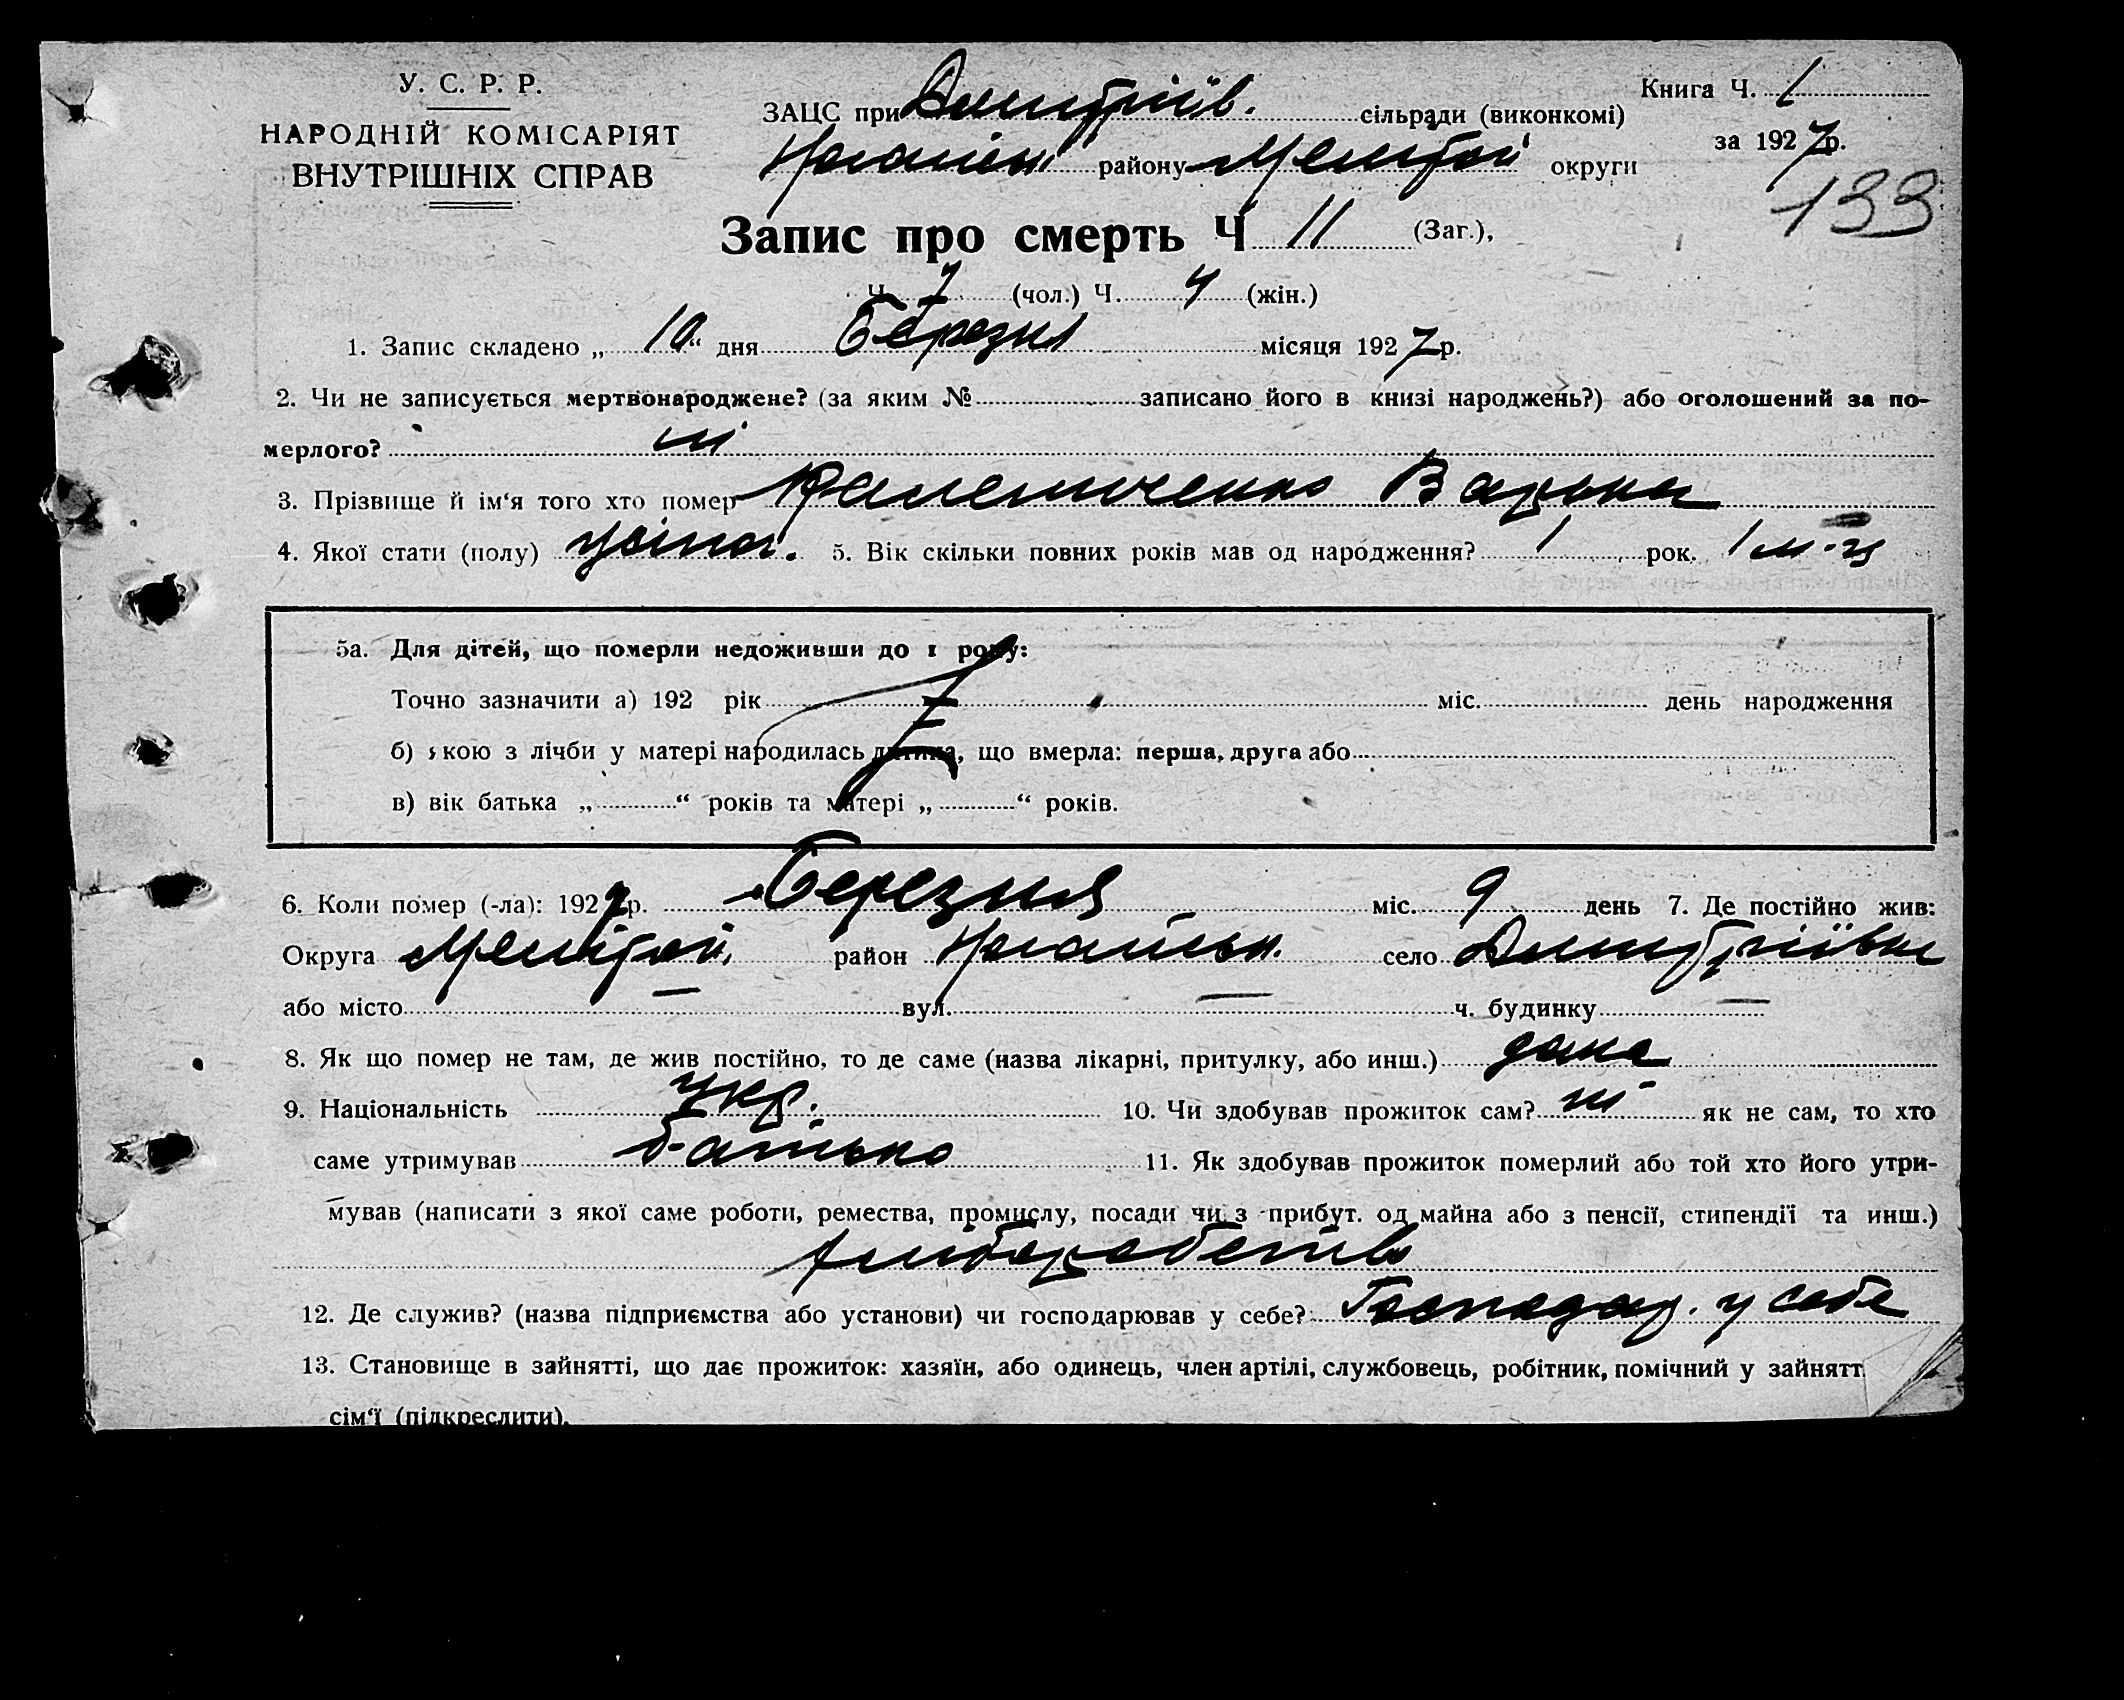 У. С. Р. Р.
НАРОДНІЙ КОМІСАРІЯТ
ВНУТРІШНІХ СПРАВ
Книга Ч. 1
за 1927 р.
133
ЗАЦС при Дмитріїв. сільради (виконкомі)
Ногайськ району Меліт округи
Запис про смерть Ч 11 (Заг.),
Ч. 7 (чол.) Ч. 4 (жін.)
1. Запис складено „ 10 “ дня Березня місяця 1927 р.
2. Чи не записується мертвонароджене? (за яким № записано його в книзі народжень?) або оголошений за по-
мерлого? ні
3. Прізвище й ім‘я того хто помер
4. Якої стати (полу) 5. Вік скільки повних років мав од народження? 1 рок. 1 м-ц
5а. Для дітей, що померли недоживши до 1 року:
Точно зазначити а) 192 рік міс. день народження
б) якою з лічби у матері народилась дитина, що вмерла: перша, друга або
в) вік батька „ “ років та матері „ “ років.
6. Коли помер (-ла): 1927 р. Березня міс. 9 день 7. Де постійно жив:
Округа район Ногайськ. село Дмитріївка
або місто — вул. — ч. будинку —
8. Як що помер не там, де жив постійно, то де саме (назва лікарні, притулку, або инш.) дома
9. Національність укр. 10. Чи здобував прожиток сам? ні як не сам, то хто
саме утримував батько 11. Як здобував прожиток померлий або той хто його утри-
мував (написати з якої саме роботи, ремества, промислу, посади чи з прибут. од майна або з пенсії, стипендії та инш.)
хліборобств
12. Де служив? (назва підприємства або установи) чи господарював у себе? Господар. у себе
13. Становище в зайнятті, що дає прожиток: хазяїн, або одинець, член артілі, службовець, робітник, помічний у зайнятт
сім‘ї (підкреслити).